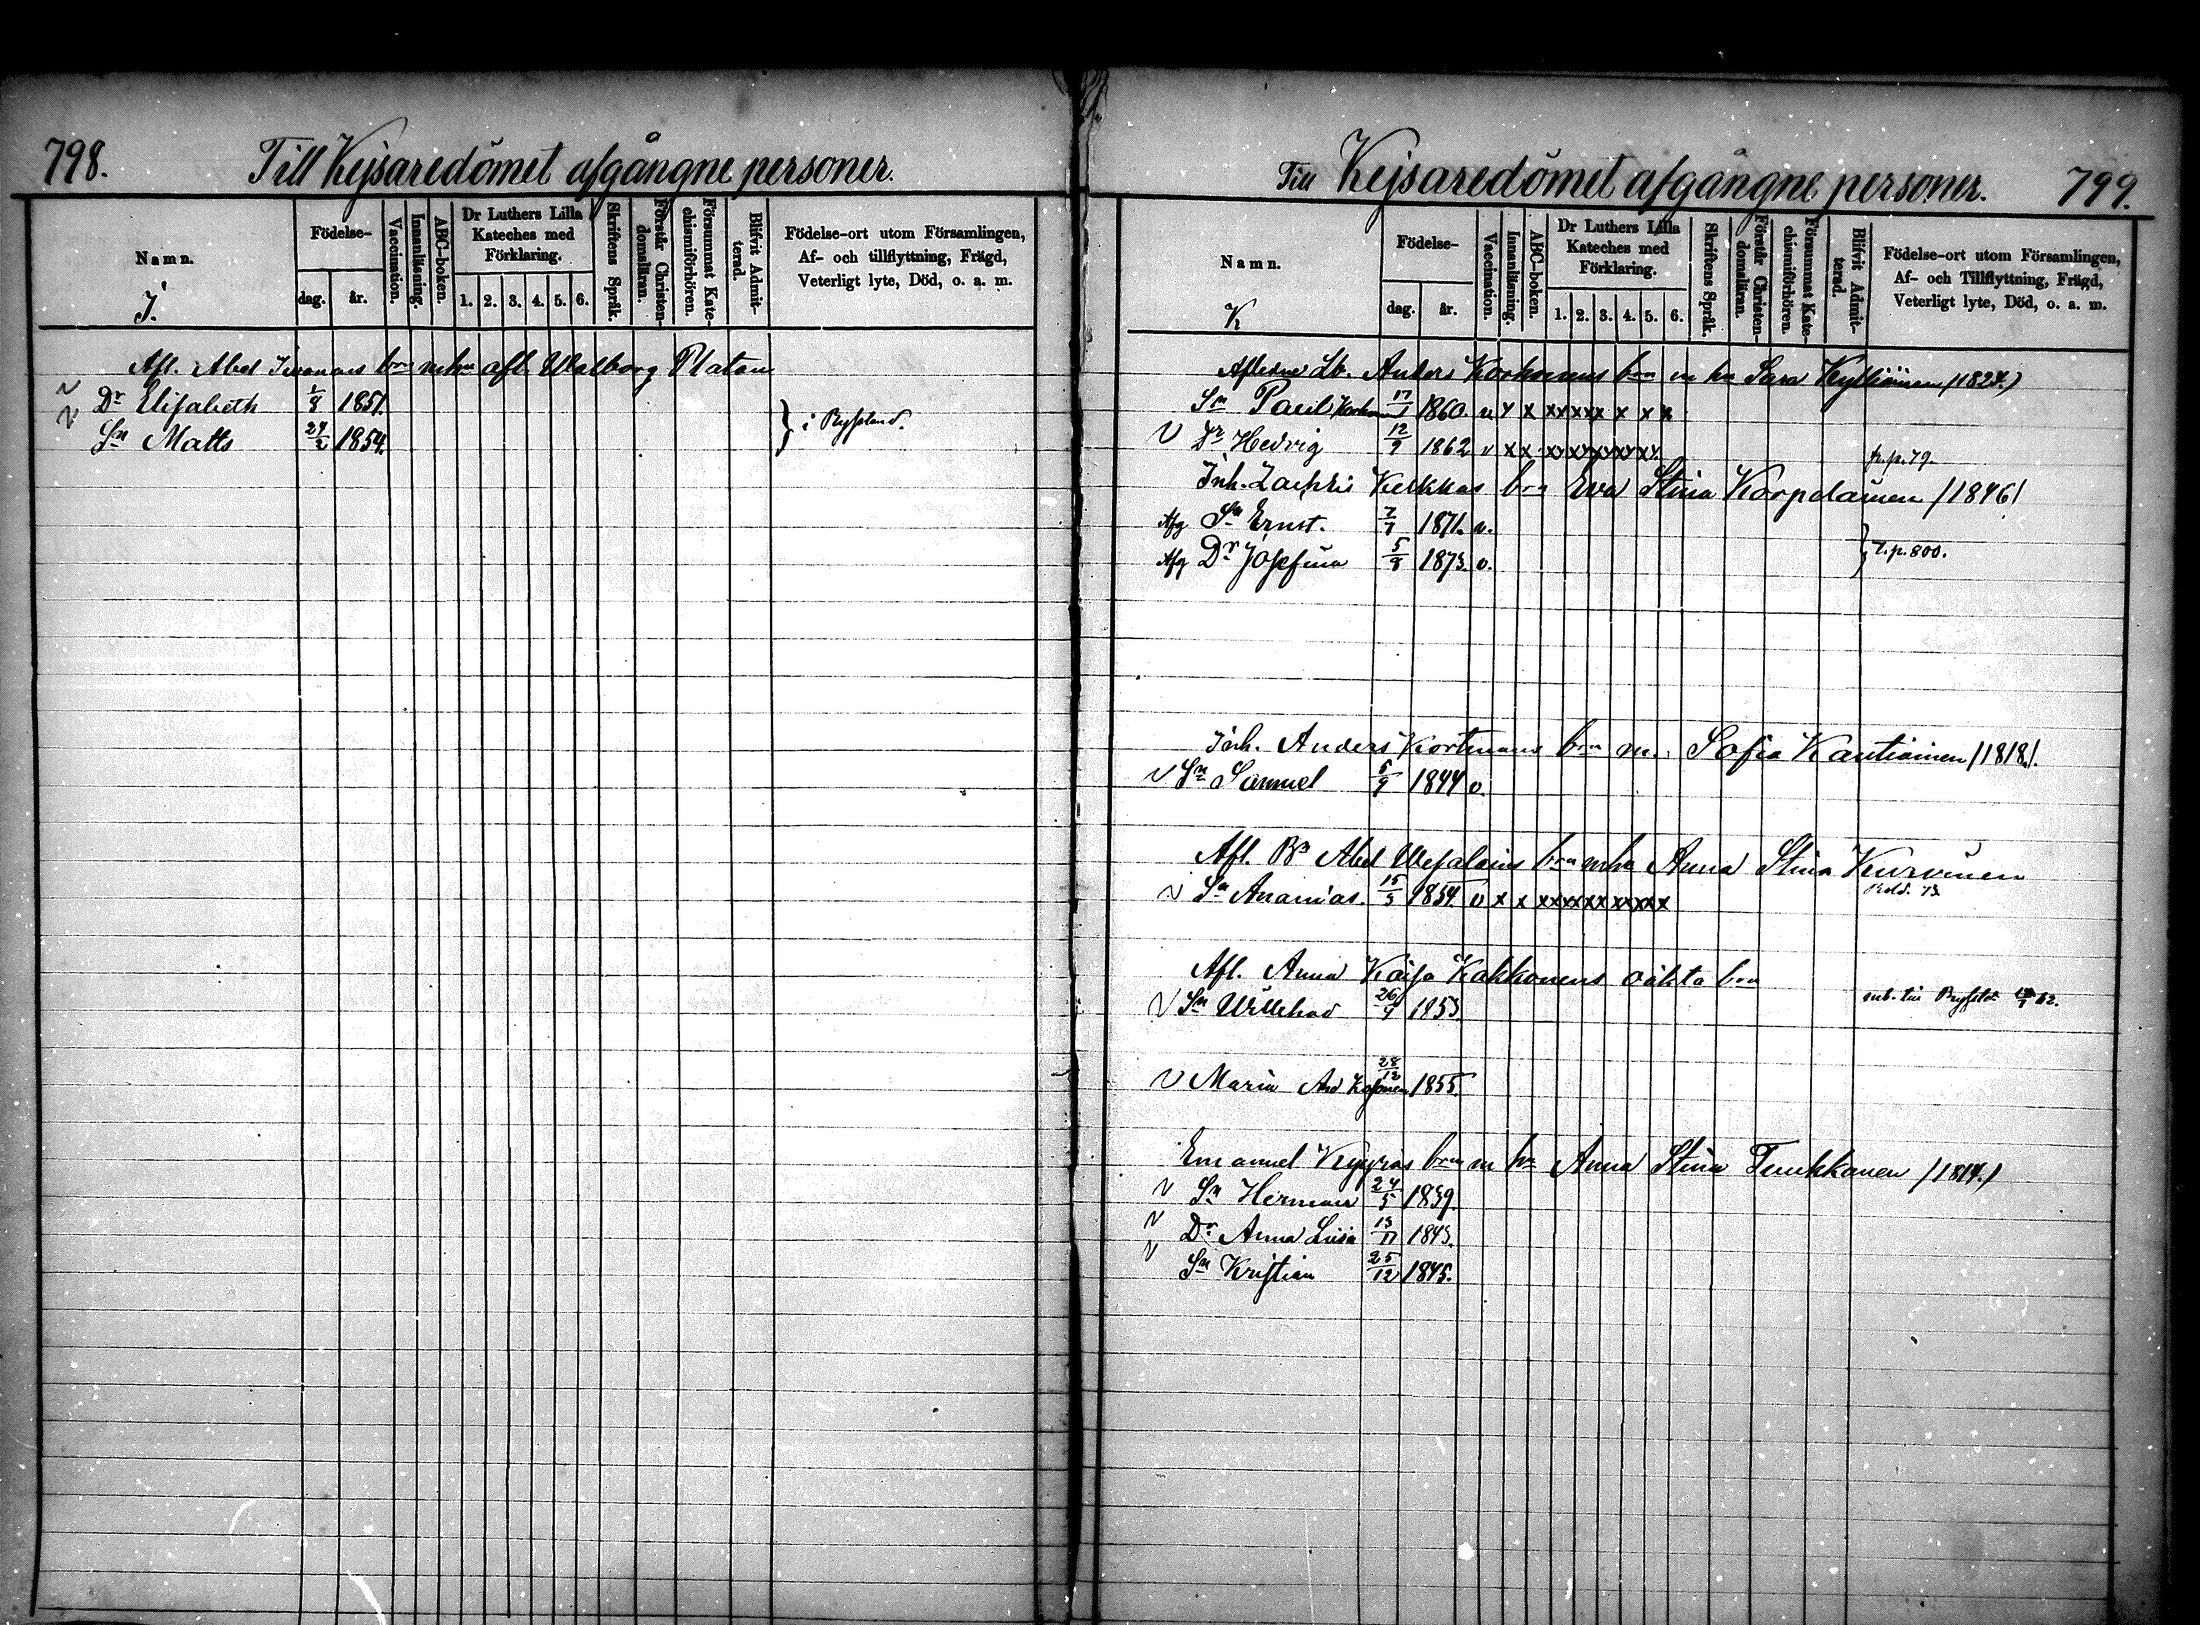 798.
Till Kejsaredömet afgångne personer.
Namn.
I.
Födelse-
dag. år.
Vaccination.
Innanläsning.
ABC-boken.
Dr Luthers Lilla
Kateches med
Förklaring.
1. 2. 3. 4. 5. 6.
Skriftens Språk.
Förstår Christen-
domsläran.
Försummat Kate-
chismiförhören.
Blifvit Admit-
terad.
Födelse-ort utom Församlingen,
Af- och tillflyttning, Frägd,
Veterligt lyte, Död, o. a. m.
Afl. Abel brn m hn afl. Walborg Platan
v Dr Elisabeth 1/8 1851.
v Sn Matts 27/2 1854.
} i Ryssland.
Till Kejsaredömet afgångne personer.
799.
Namn.
K
Födelse-
dag. år.
Vaccination.
Innanläsning.
ABC-boken.
Dr Luthers Lilla
Kateches med
Förklaring.
1. 2. 3. 4. 5. 6.
Skriftens Språk.
Förstår Christen-
domsläran.
Försummat Kate-
chismiförhören.
Blifvit Admit-
terad.
Födelse-ort utom Församlingen,
Af- och Tillflyttning, Frägd,
Veterligt lyte, Död, o. a. m.
Aflidne Lb. Anders Korhonens brn m hn Sara /1824./
Sn Paul 1860. v x x xxxxx x x x
v Dr Hedvig 12/9 1862 v x x xxxxxxxx fr. p. 79.
Inh. Zachris Kerkkas brn Eva Stina Korpelainen /1846/
Afg Sn Ernst. 7/7 1871. v.
Afg Dr Josefina 5/8 1873. v.
} T. p. 800.
Inh. Anders Kortmans brn m. Sofia Kautiainen /1818/.
v Sn Samuel 5/9 1844 v.
Afl. Bn Abel brn m hn Anna Stina Kurvinen
v Sn Ananias. 15/3 1854. v x x xxxxxxxxxxx
Afl. Anna Kaisa Kakkonens oäkta brn
v Sn Willehad 26/4 1853.
v Maria 28/12 1855.
Emanuel Kyyräs brn m hn Anna Stina Tuukkanen /1814./
v Sn Herman 24/5 1839.
v Dr Anna Lisa 13/11 1843.
v Sn Kristian 25/12 1845.